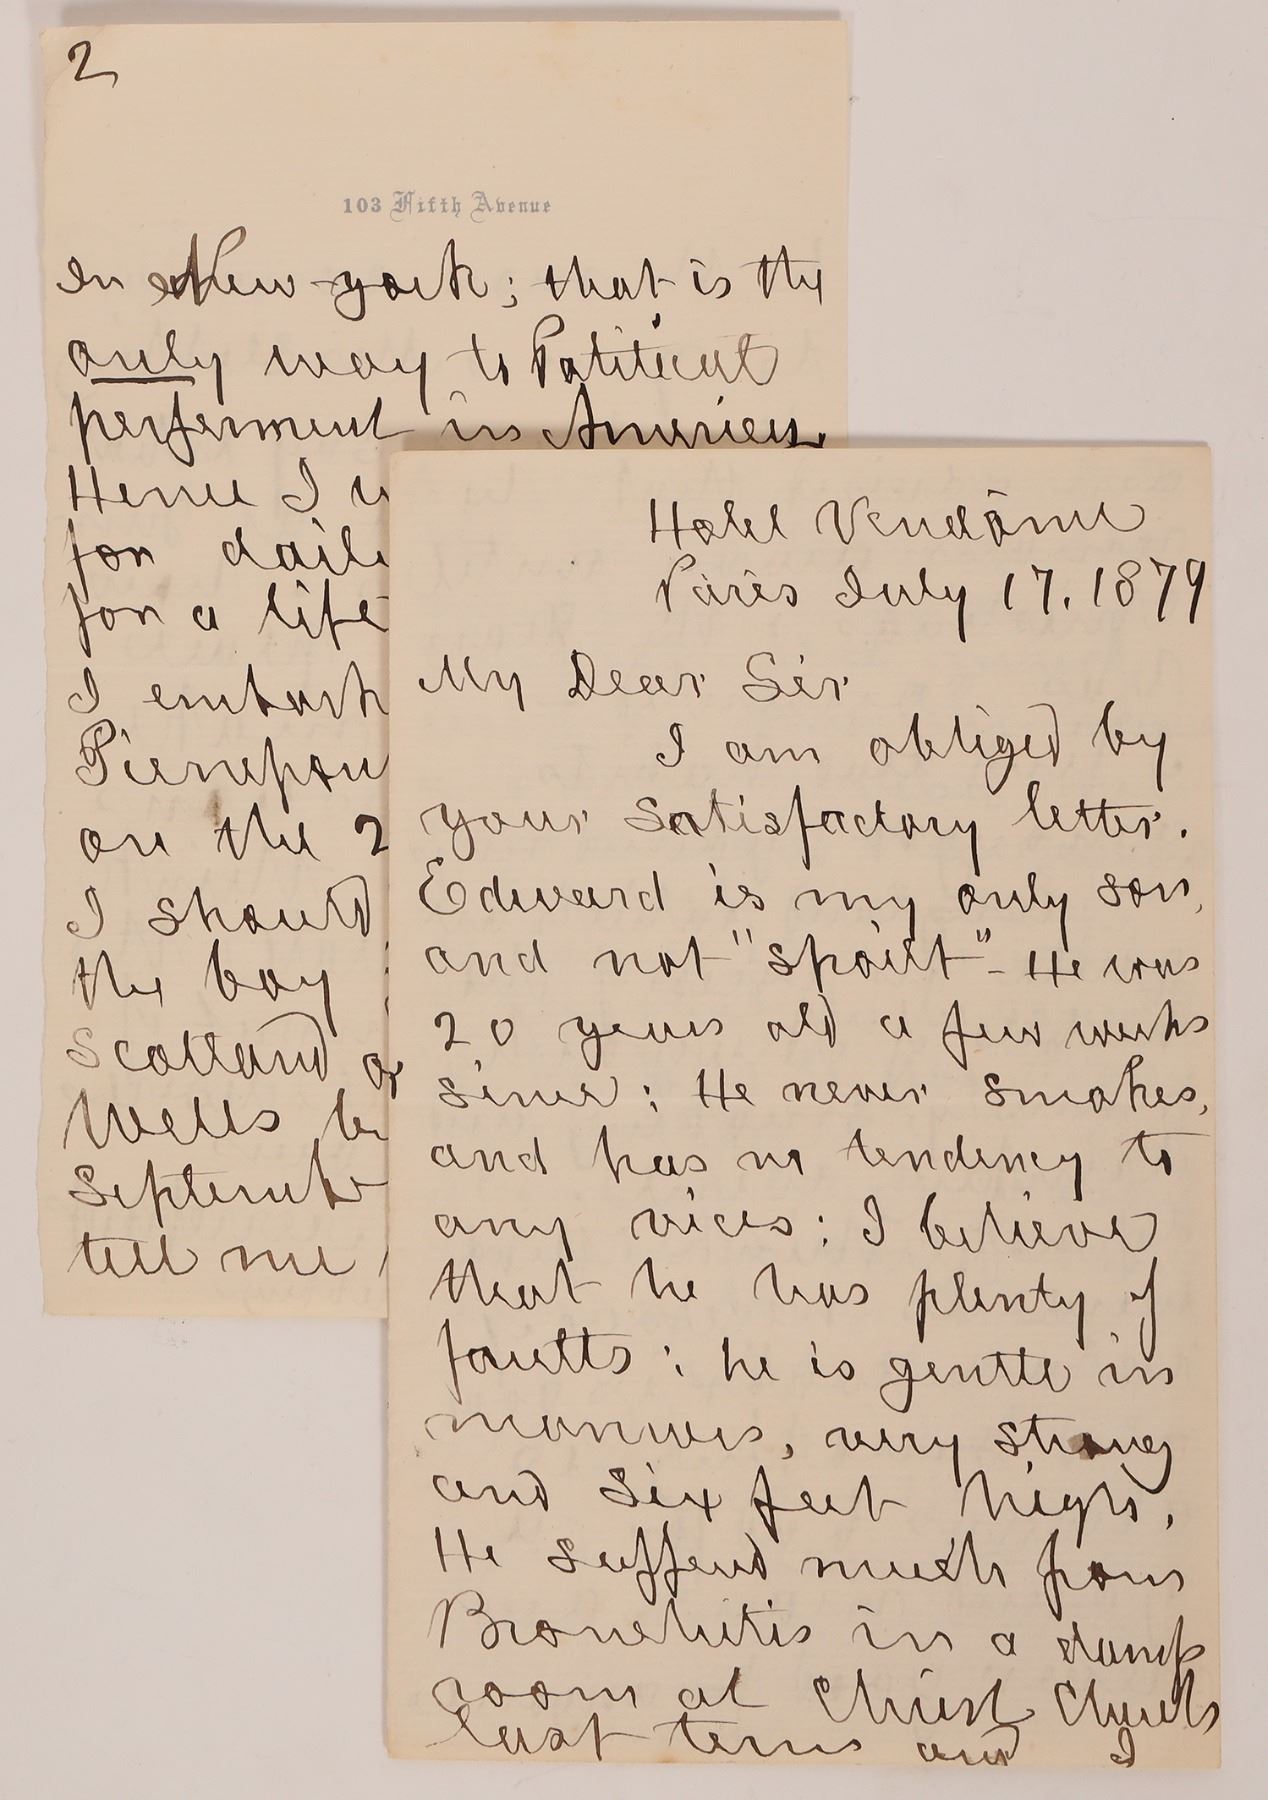 Hotel Vendôme
Paris July 17. 1879
My Dear Sir
I am obliged by
your satisfactory letter.
Edward is my only son,
and not "spoilt" - He was
20 years old a few weeks
since: He never smokes,
and has no tendency to
any vices: I believe
that he has plenty of
faults: he is gentle in
manners, very strong
and six feet high.
He suffered much from
Bronchitis in a damp
room at Christ Church
last term and I
2
103 Fifth Avenue
In New-york; that is the
only way to Political
perferment in America
Hence I
for
for a life
I embark
Pierrepon
on the 2
I should
the boy
Scotland or
Wells
Septembe
tell me